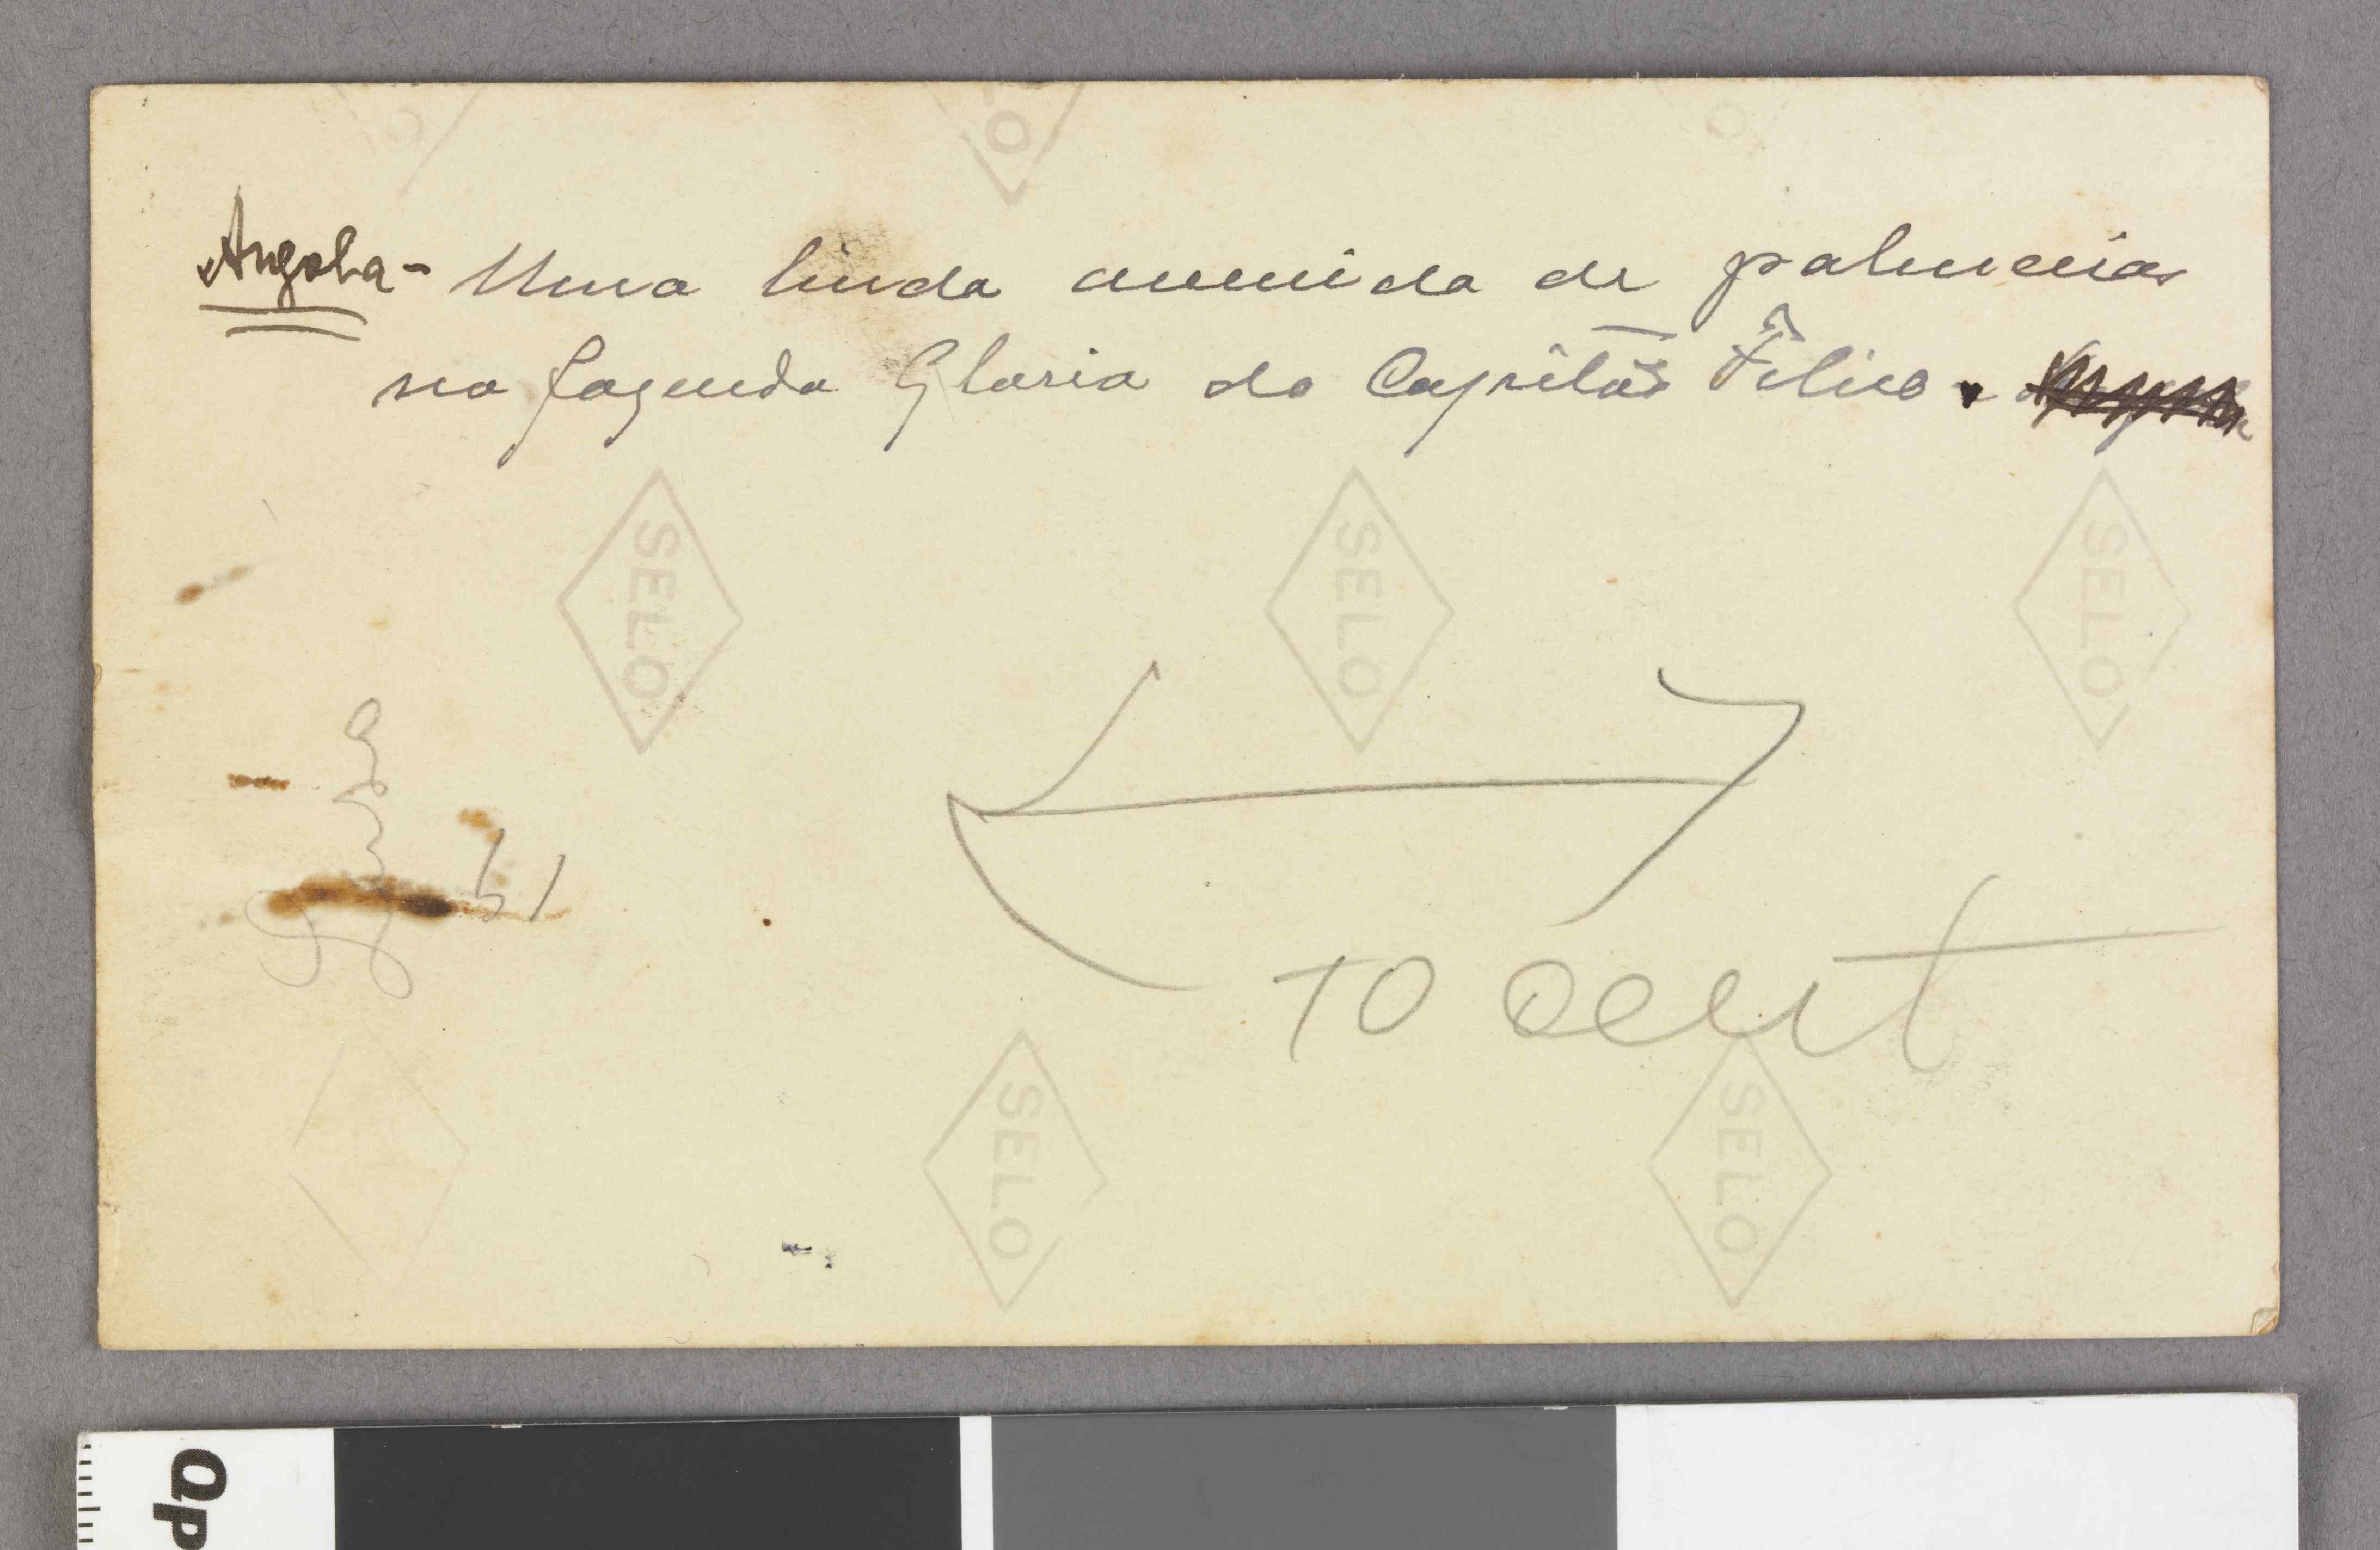 Angola - Uma linda avenida de palmeiras
na fazenda Gloria do Capitão
LO
O
SELO
SELO
SELO
10 cent
SELO
SELO
Qp